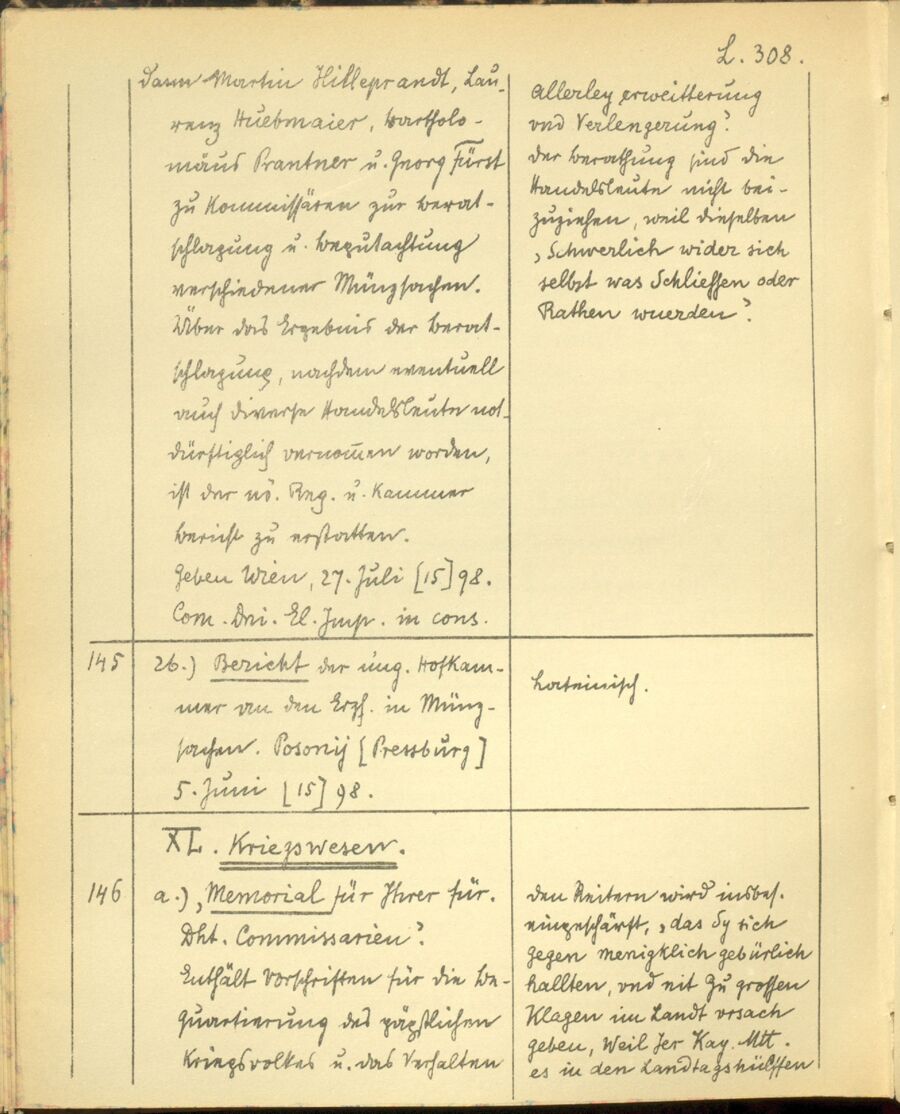 L. 308.
dann Martin Hilleprandt, Lau-
renz Huebmaier, Bartholo-
mäus Prantner u. Georg Fürst
zu Kommissären zur Berat-
schlagung u. Begutachtung
verschiedener Münzsachen.
Über das Ergebnis der Berat-
schlagung, nachdem eventuell
auch diverse Handelsleute not-
dürftiglich vernommen worden,
ist der nö. Reg. u. Kammer
Bericht zu erstatten.
Geben Wien, 27. Juli [15]98.
Com. Dni. El. Imp. in cons.
allerley erweitterung
vnd Verlengerung".
Der Berathung sind die
Handelsleute nicht bei-
zuziehen, weil dieselben
„Schwerlich wider sich
selbst was Schliessen oder
Rathen wuerden".
145 26.) Bericht der ung. Hofkam-
mer an den Erzh. in Münz-
sachen. Posonij [Pressburg]
5. Juni [15]98.
Lateinisch.
XL. Kriegswesen.
146 a.) „Memorial für Ihrer für.
Dht. Commissarien".
Enthält Vorschriften für die Be-
quartierung des päpstlichen
Kriegsvolkes u. das Verhalten
Den Reitern wird insbes.
eingeschärft, „das Sy sich
gegen menigklich gebürlich
hallten, vnd nit Zu grossen
Klagen im Landt vrsach
geben, Weil Jer Kay. Mtt.
es in den Landtagshülffen